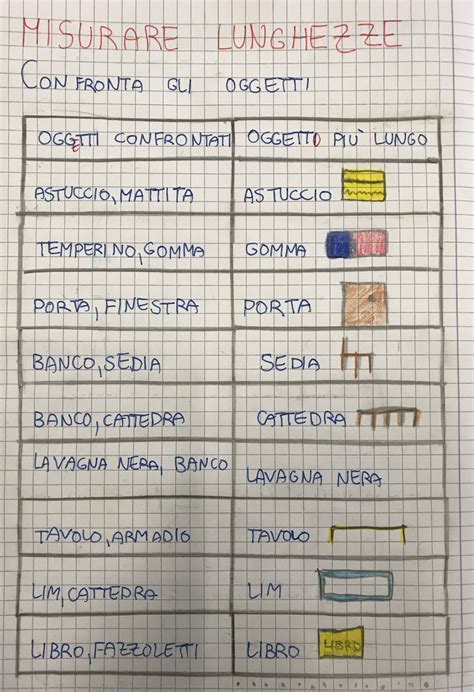 MISURARE LUNGHEZZE
CONFRONTA GLI OGGETTI
OGGETTI CONFRONTATI OGGETTO PIÙ LUNGO
ASTUCCIO, MATTITA ASTUCCIO
TEMPERINO, GOMMA GOMMA
PORTA, FINESTRA PORTA
BANCO, SEDIA SEDIA
BANCO, CATTEDRA CATTEDRA
LAVAGNA NERA, BANCO LAVAGNA NERA
TAVOLO, ARMADIO TAVOLO
LIM, CATTEDRA LIM
LIBRO, FAZZOLETTI LIBRO LIBRO